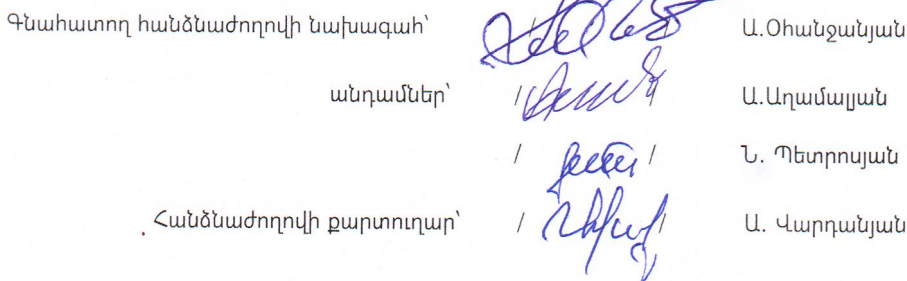 Գնահատող հանձնաժողովի նախագահ՝ / / Ա.Օհանջանյան
անդամներ՝ / / Ա.Աղամալյան
/ / Ն. Պետրոսյան
Հանձնաժողովի քարտուղար՝ / / Ա. Վարդանյան